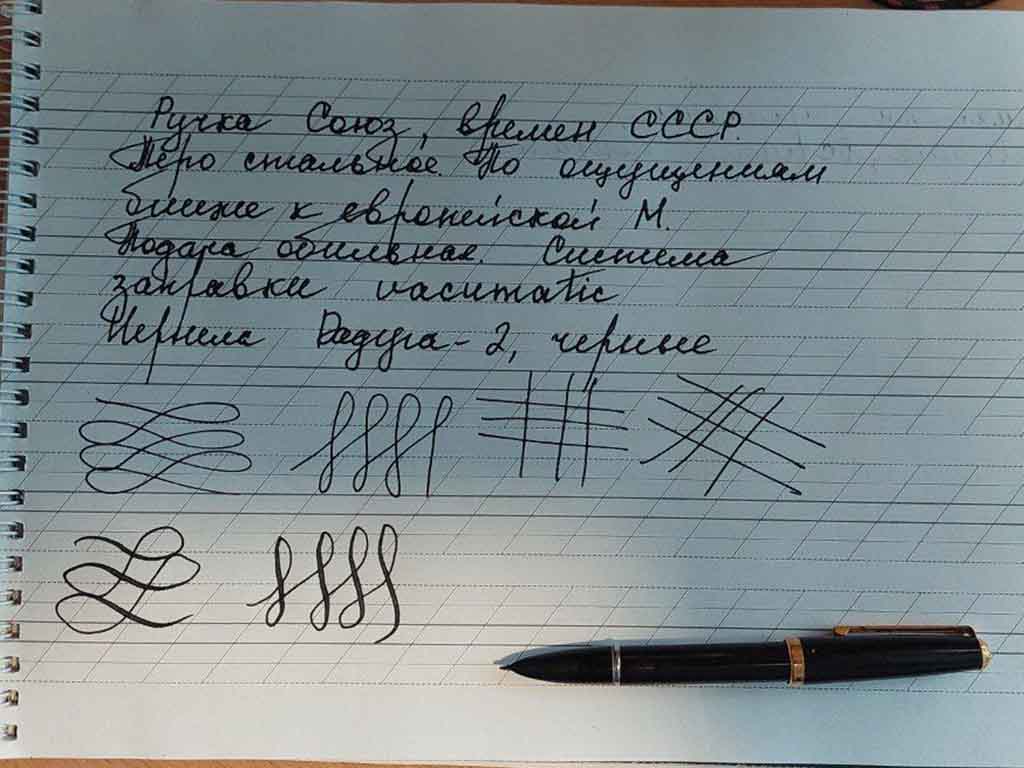 Ручка Союз, времен СССР.
Перо стальное. По ощущениям
ближе к европейской М.
Подача обильная. Система
заправки vacumatic
Чернила Радуга-2, черные